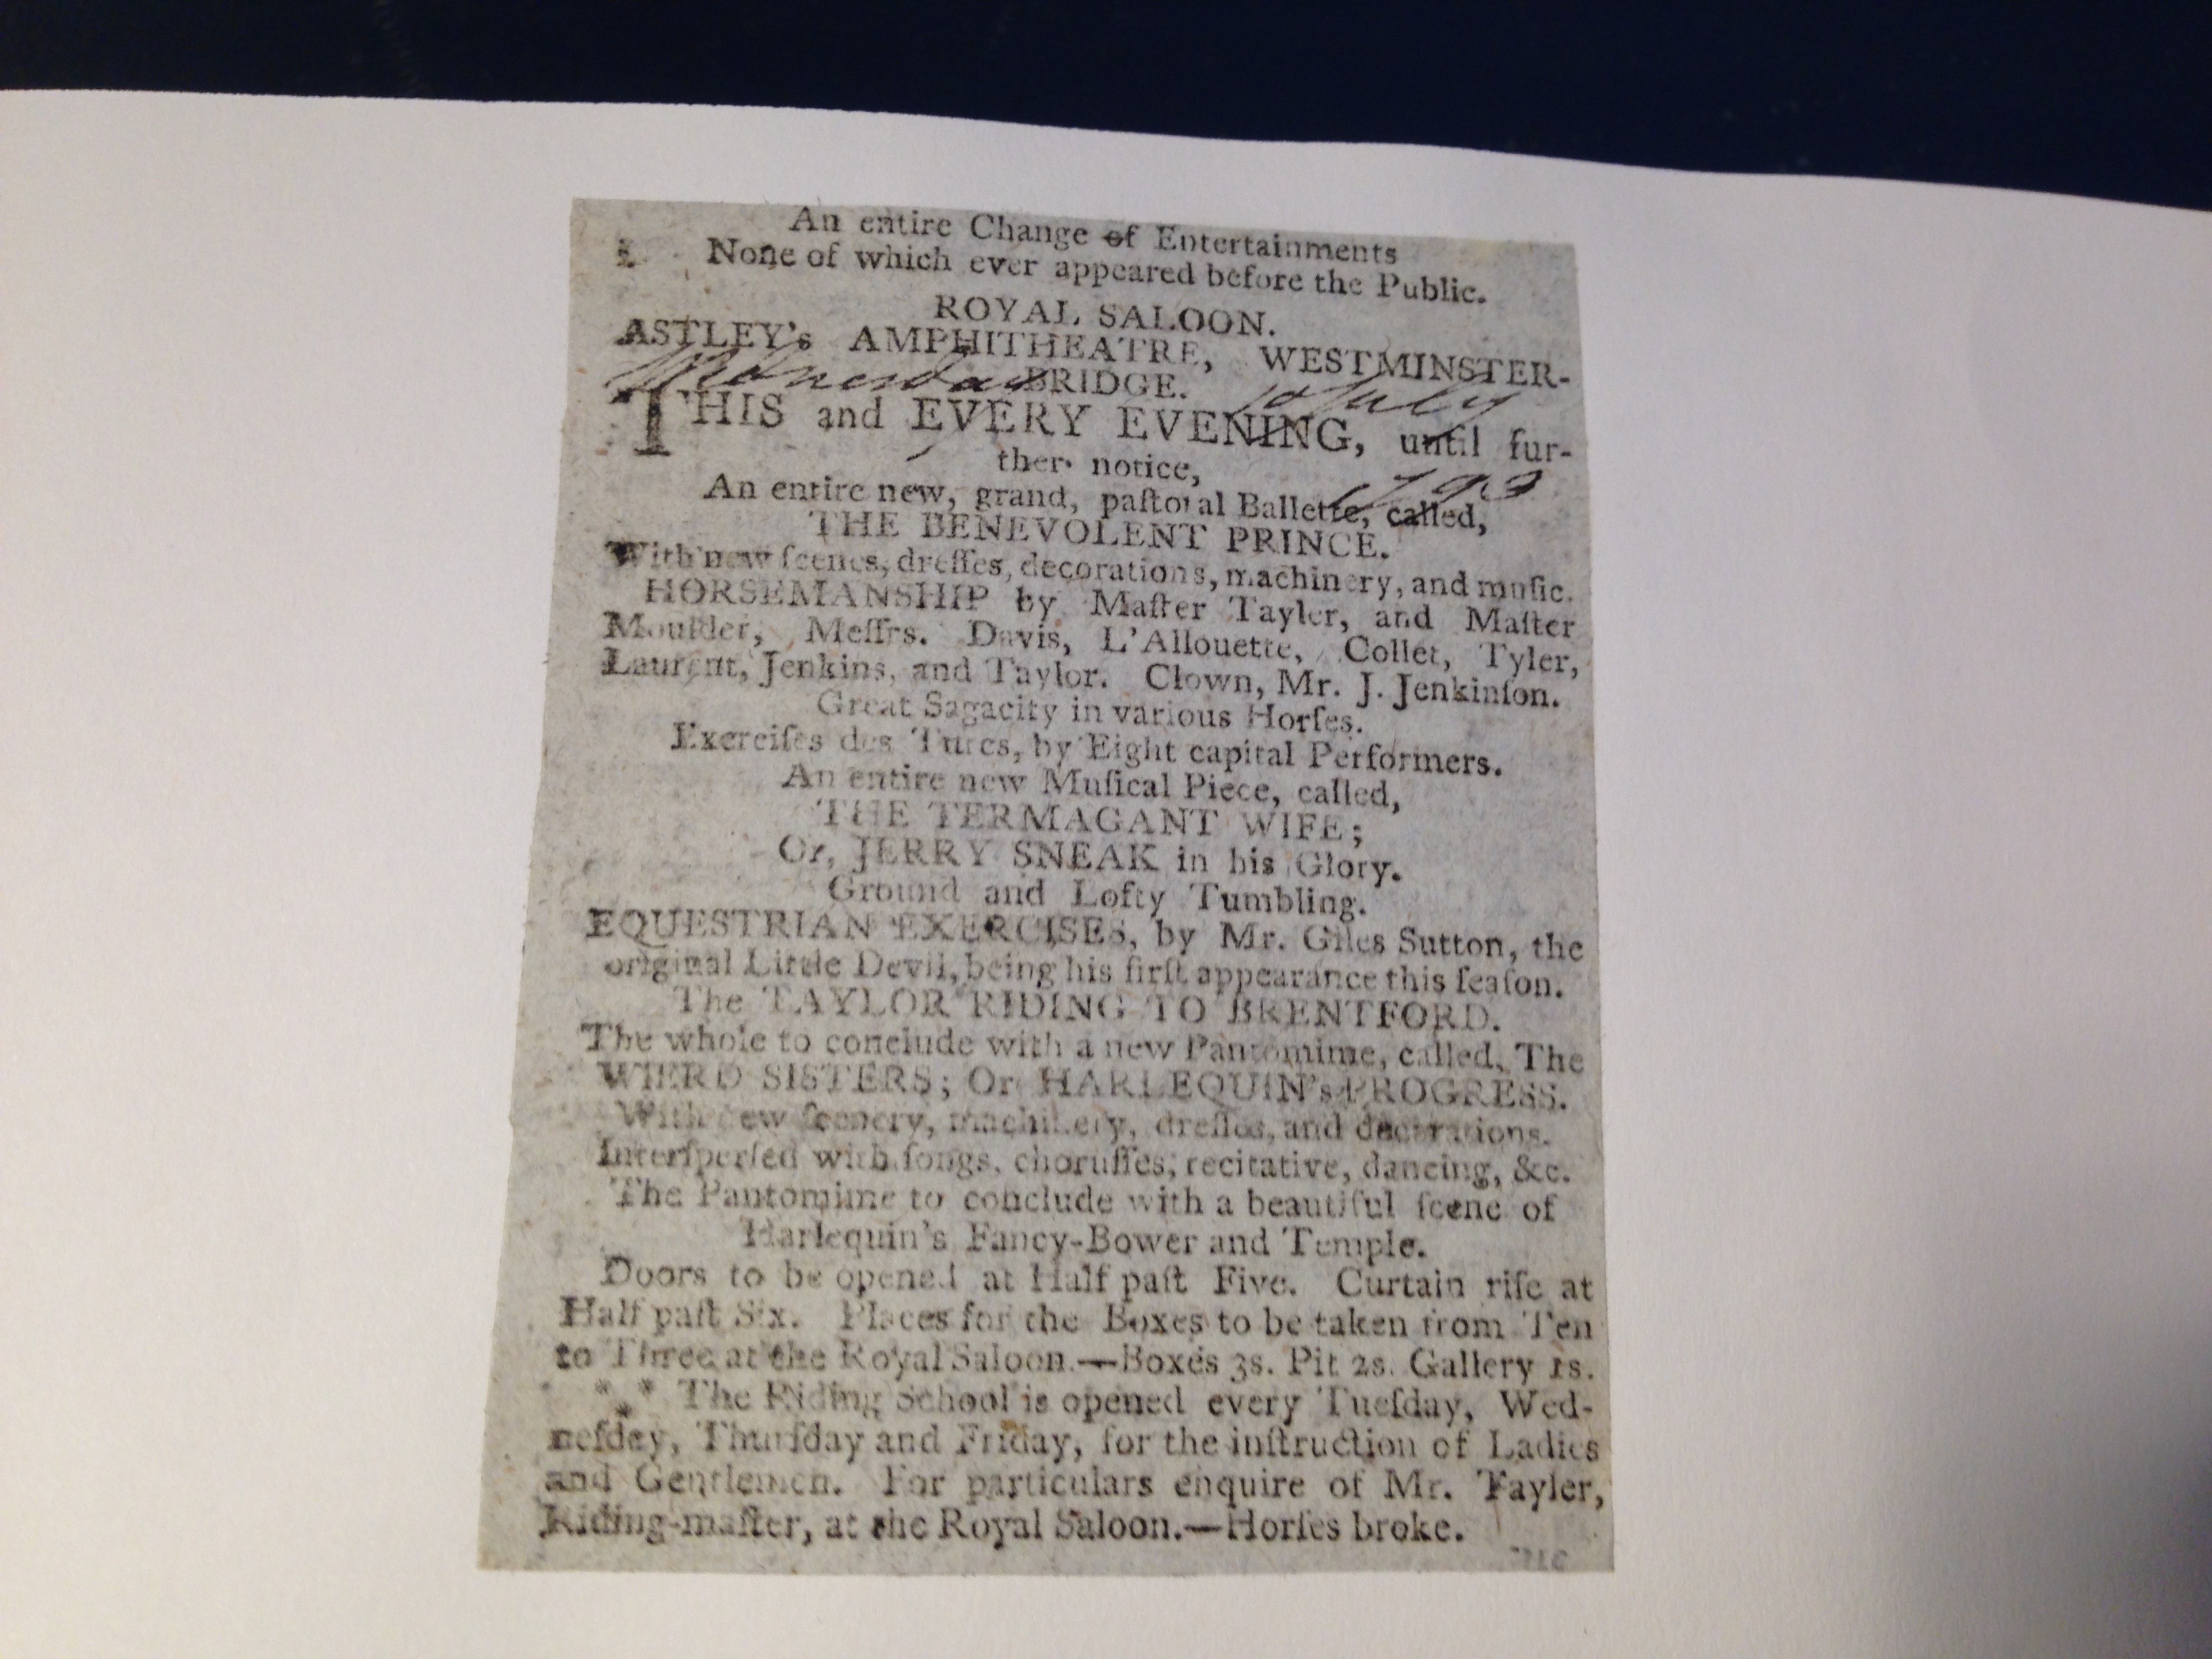 An entire Change of Entertainments
None of which ever appeared before the Public.
ROYAL SALOON.
ASTLEY's AMPHITHEATRE, WESTMINSTER-
BRIDGE.
July
THIS and EVERY EVENING, until fur-
ther notice,
An entire new, grand, paſtoral Ballette, called,
THE BENEVOLENT PRINCE.
With new ſcenes, dreſſes, decorations, machinery, and muſic.
HORSEMANSHIP by Maſter Tayler, and Maſter
Moulder, Meſſrs. Davis, L'Allouette, Collet, Tyler,
Laurent, Jenkins, and Taylor. Clown, Mr. J. Jenkinſon.
Great Sagacity in various Horſes.
Exerciſes des Turcs, by Eight capital Performers.
An entire new Muſical Piece, called,
THE TERMAGANT WIFE;
Or, JERRY SNEAK in his Glory.
Ground and Lofty Tumbling.
EQUESTRIAN EXERCISES, by Mr. Giles Sutton, the
original Little Devil, being his firſt appearance this ſeaſon.
The TAYLOR RIDING TO BRENTFORD.
The whole to conclude with a new Pantomime, called, The
WIERD SISTERS; Or HARLEQUIN's PROGRESS.
With new ſcenery, machinery, dreſſes, and decorations.
Interſperſed with ſongs, choruſſes, recitative, dancing, &c.
The Pantomime to conclude with a beautiful ſcene of
Harlequin's Fancy-Bower and Temple.
Doors to be opened at Half paſt Five. Curtain riſe at
Half paſt Six. Places for the Boxes to be taken from Ten
to Three at the Royal Saloon.—Boxes 3s. Pit 2s. Gallery 1s.
*** The Riding School is opened every Tueſday, Wed-
neſday, Thurſday and Friday, for the inſtruction of Ladies
and Gentlemen. For particulars enquire of Mr. Tayler,
Riding-maſter, at the Royal Saloon.—Horſes broke.